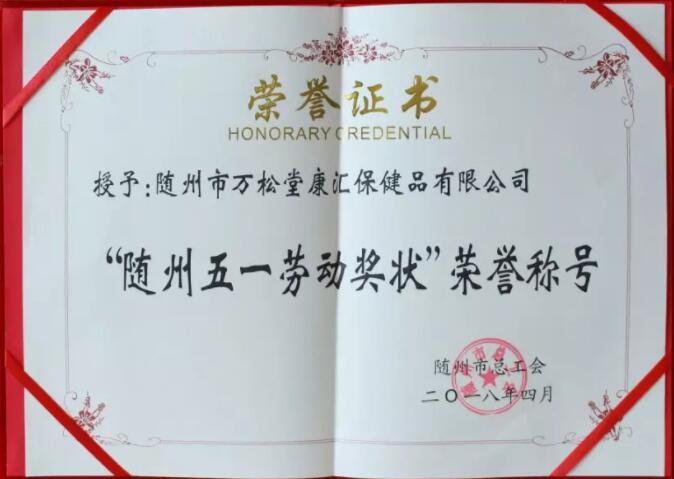 荣誉证书
HONORARY CREDENTIAL
授予:随州市万松堂康汇保健品有限公司
“随州五一劳动奖状”荣誉称号
随州市总工会
二〇一八年四月